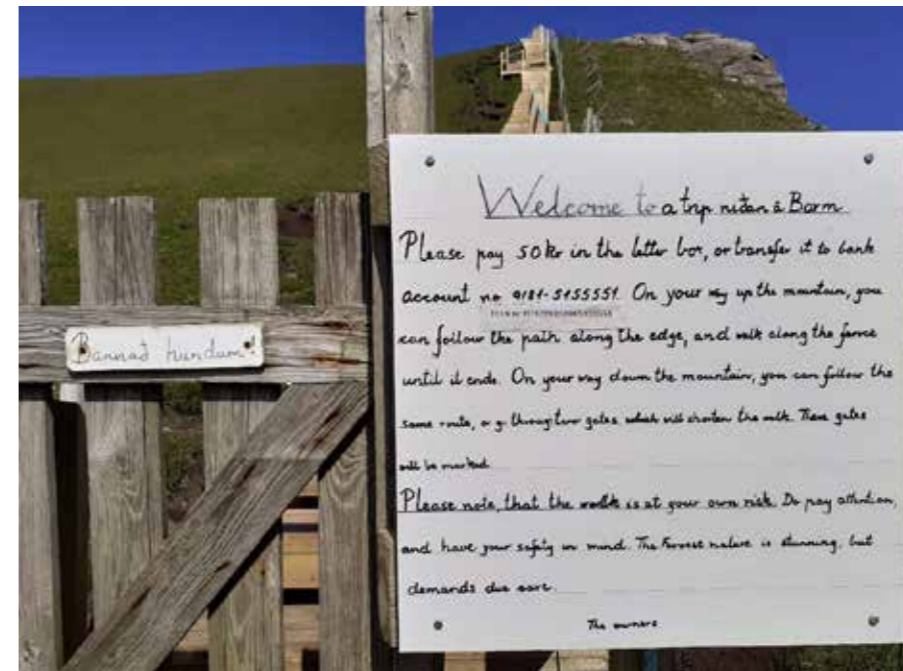 Bannað hundum!
Welcome to a trip niðan á Borm
Please pay 50 kr in the letter box, or transfer it to bank
account no 9181-5155551. On your way up the mountain, you
can follow the path along the edge, and walk along the fence
until it ends. On your way down the mountain, you can follow the
same route, or go through two gates which will shorten the walk. These gates
will be marked.
Please note, that the walk is at your own risk. Do pay attention,
and have your safety in mind. The Faroese nature is stunning, but
demands due care.
The owners